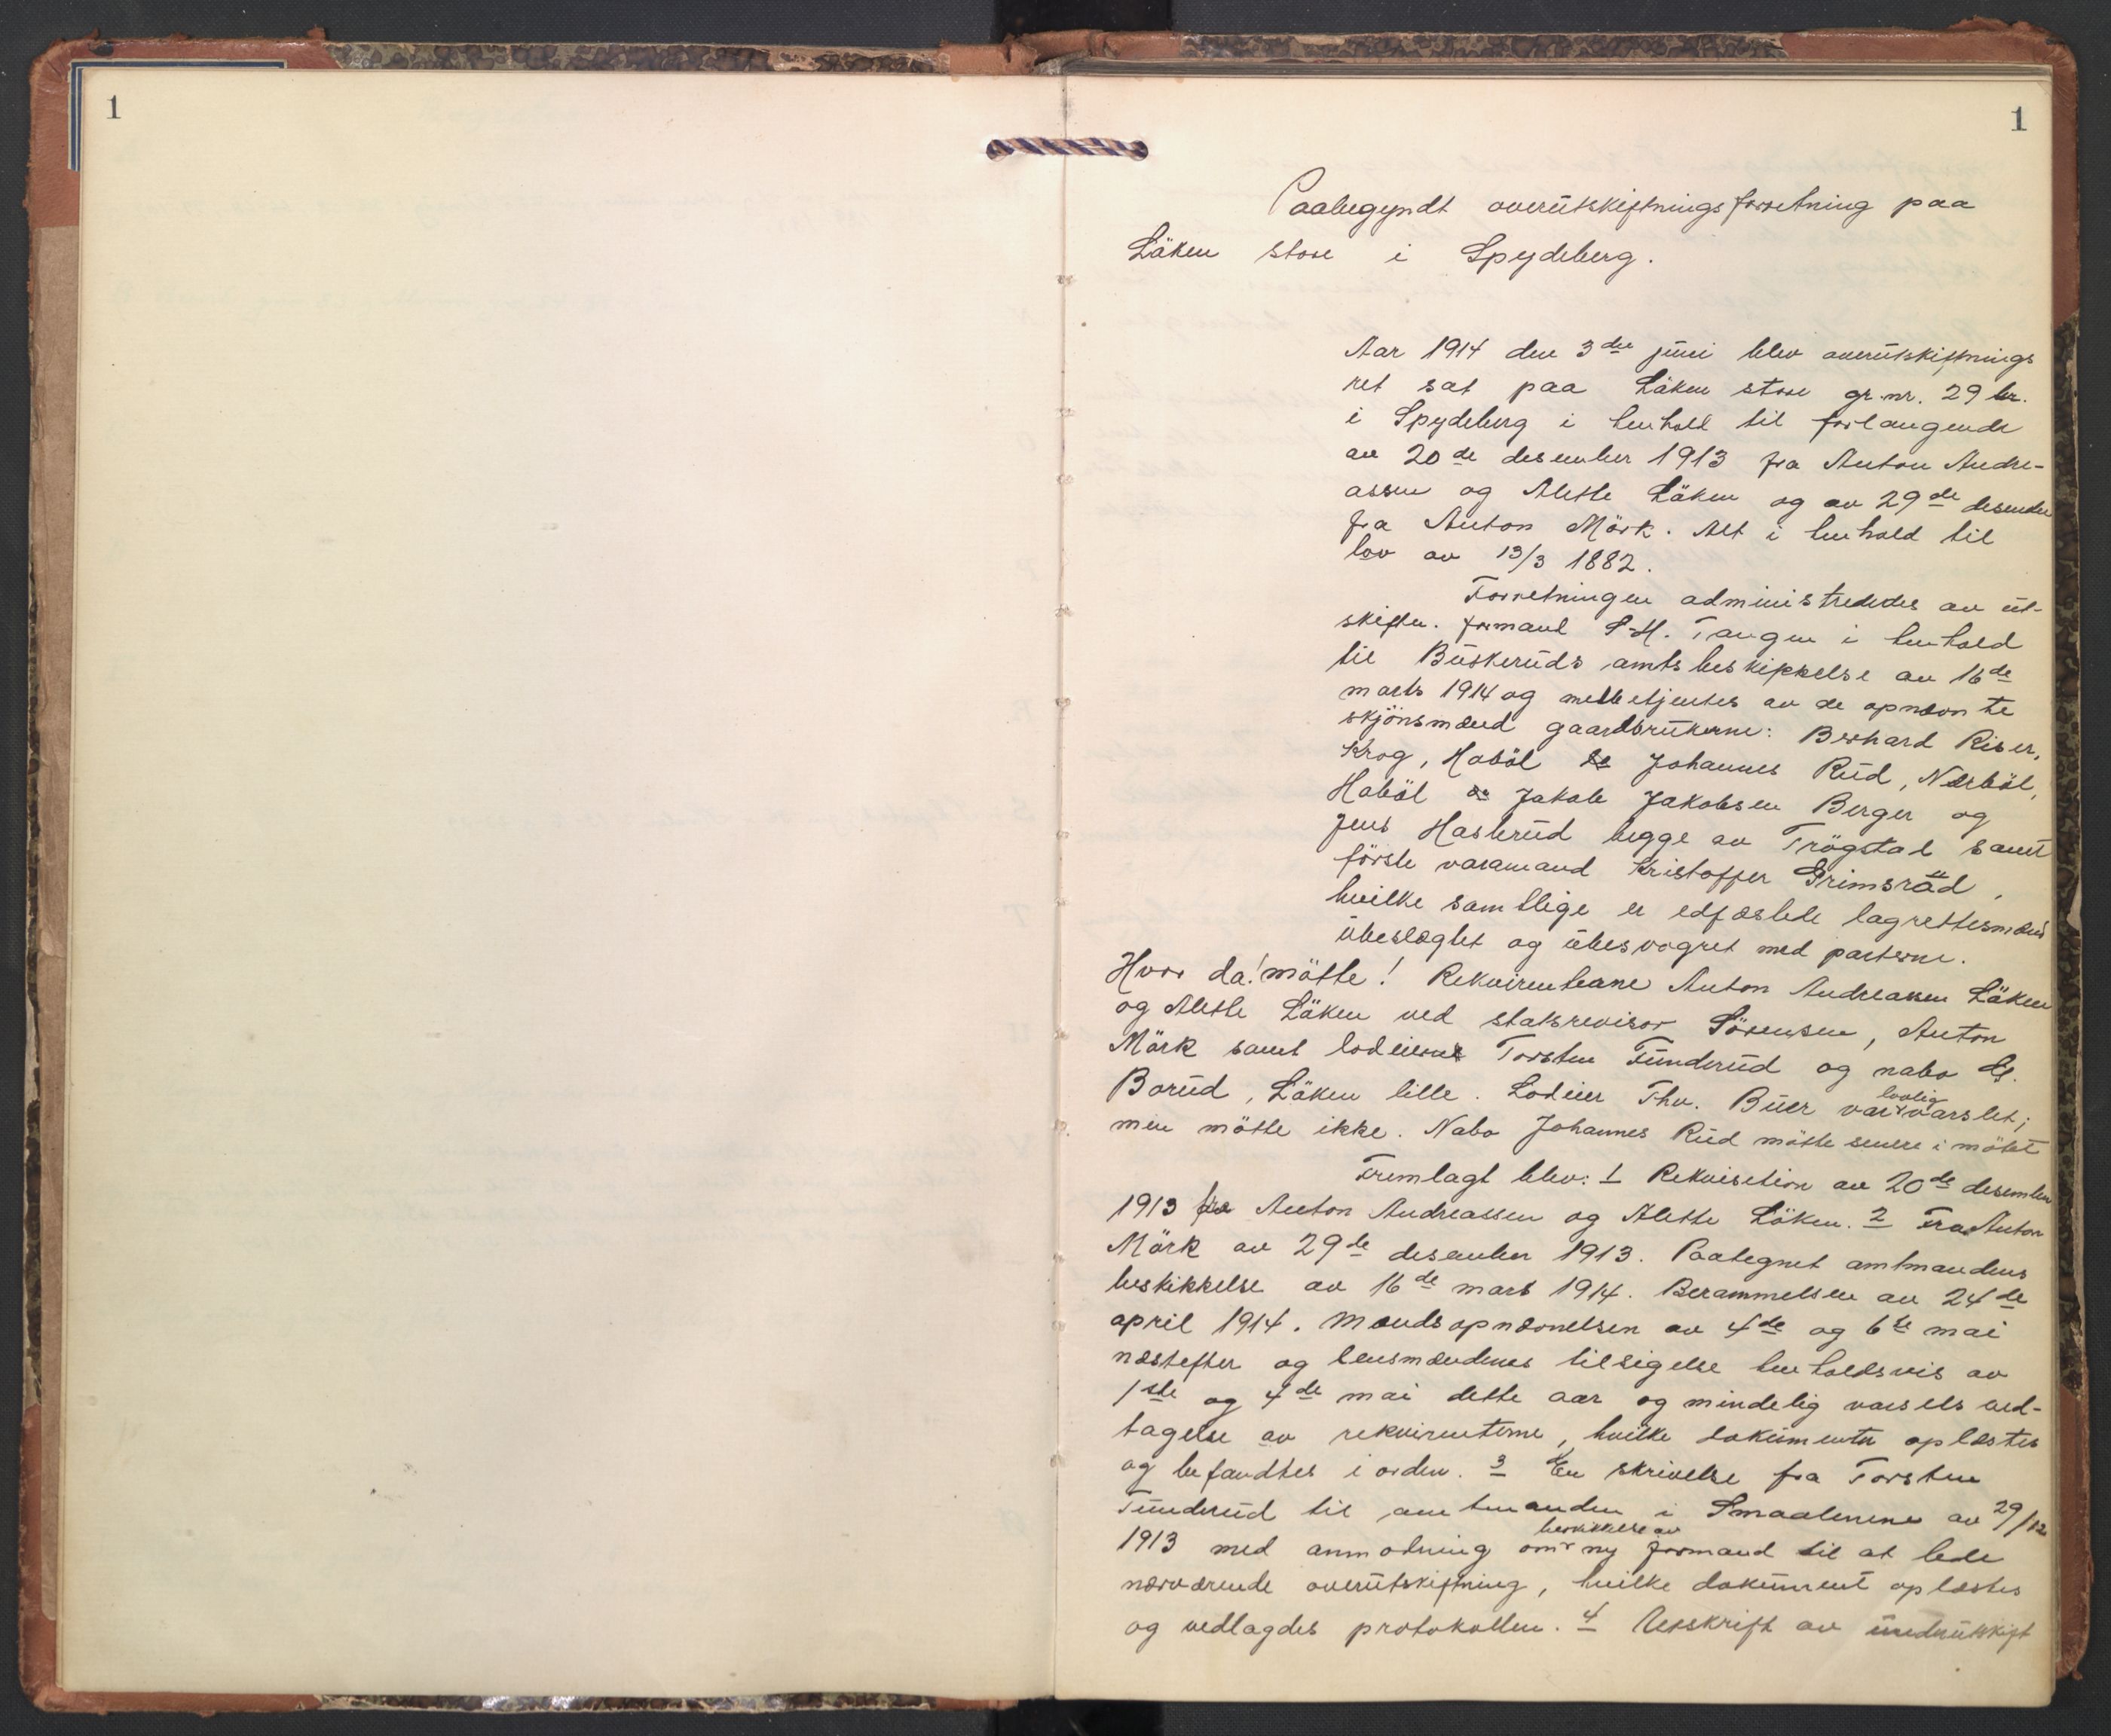 1
1
Paabegyndt overutskiftningsforretning paa
Läken store i Spydeberg.
Aar 1914 den 3de juni blev overutskiftnings
ret sat paa Läken store gr.nr. 29 br.
i Spydeberg i henhold til forlangende
av 20de desember 1913 fra Anton Andre-
assen og Alette Läken og av 29de desember
fra Anton Mörk. Alt i henhold til
lov av 13/3 1882.
Forretningen administredes av ut-
skiftn. formand S.H. Tangen i henhold
til Buskeruds amts beskikkelse av 16de
marts 1914 og medbetjentes av de opnævnte
skjönsmænd gaardbrukerne: Berhard Riser,
Krog, Haböl Johannes Rud, Nærböl,
Haböl Jakob Jakobsen Berger og
Jens Hasterud begge av Trögstad samt
förste varamand Kristoffer Grimsrud,
hvilke samtlige er edfæstede lagrettesmænd
ubeslægtet og ubesvogret med parterne.
Hvor da! mötte! Rekvirenterne Anton Andreassen Läken
og Alette Läken ved statsrevisor Sörensen, Anton
Mörk samt lodeierne Torsten Tunderud og nabo
Borud, Läken lille. Lodeier Thv. Buer var lovlig varslet;
men mötte ikke. Nabo Johannes Rud mötte senere i mötet
Fremlagt blev: 1 Rekvisition av 20de desember
1913 fra Anton Andreassen og Alette Löken. 2 Fra Anton
Mörk av 29de desember 1913. Paategnet amtmandens
beskikkelse av 16de mars 1914. Berammelsen av 24de
april 1914. Mandsopnævnelsen av 4de og 6te mai
næstefter og lensmændenes tilsigelse henholdsvis av
1ste og 4de mai dette aar og mindelig varsels ved-
tagelse av rekvirenterne, hvilke dokumenter oplæstes
og befandtes i orden. 3 En skrivelse fra Torsten
Tunderud til amtmanden i Smaalenene av 29/12
1913 med anmodning om beskikkelse av ny formand til at lede
nærværende overutskiftning, hvilke dokument oplæstes
og vedlagdes protokollen. 4 Utskrift av underutskift